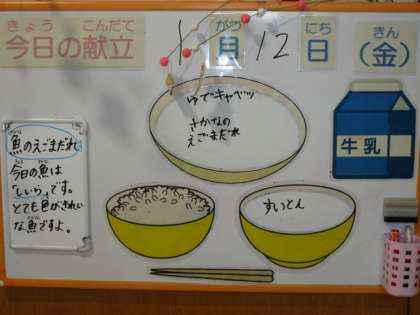 きょう こんだて がつ にち きん
今日の献立 1月12日(金)
ゆでキャベツ
さかなの
えごまだれ
牛乳
魚のえごまだれ
今日の魚は
「しいら」です。
とても色がきれい
な魚ですよ。
すいとん